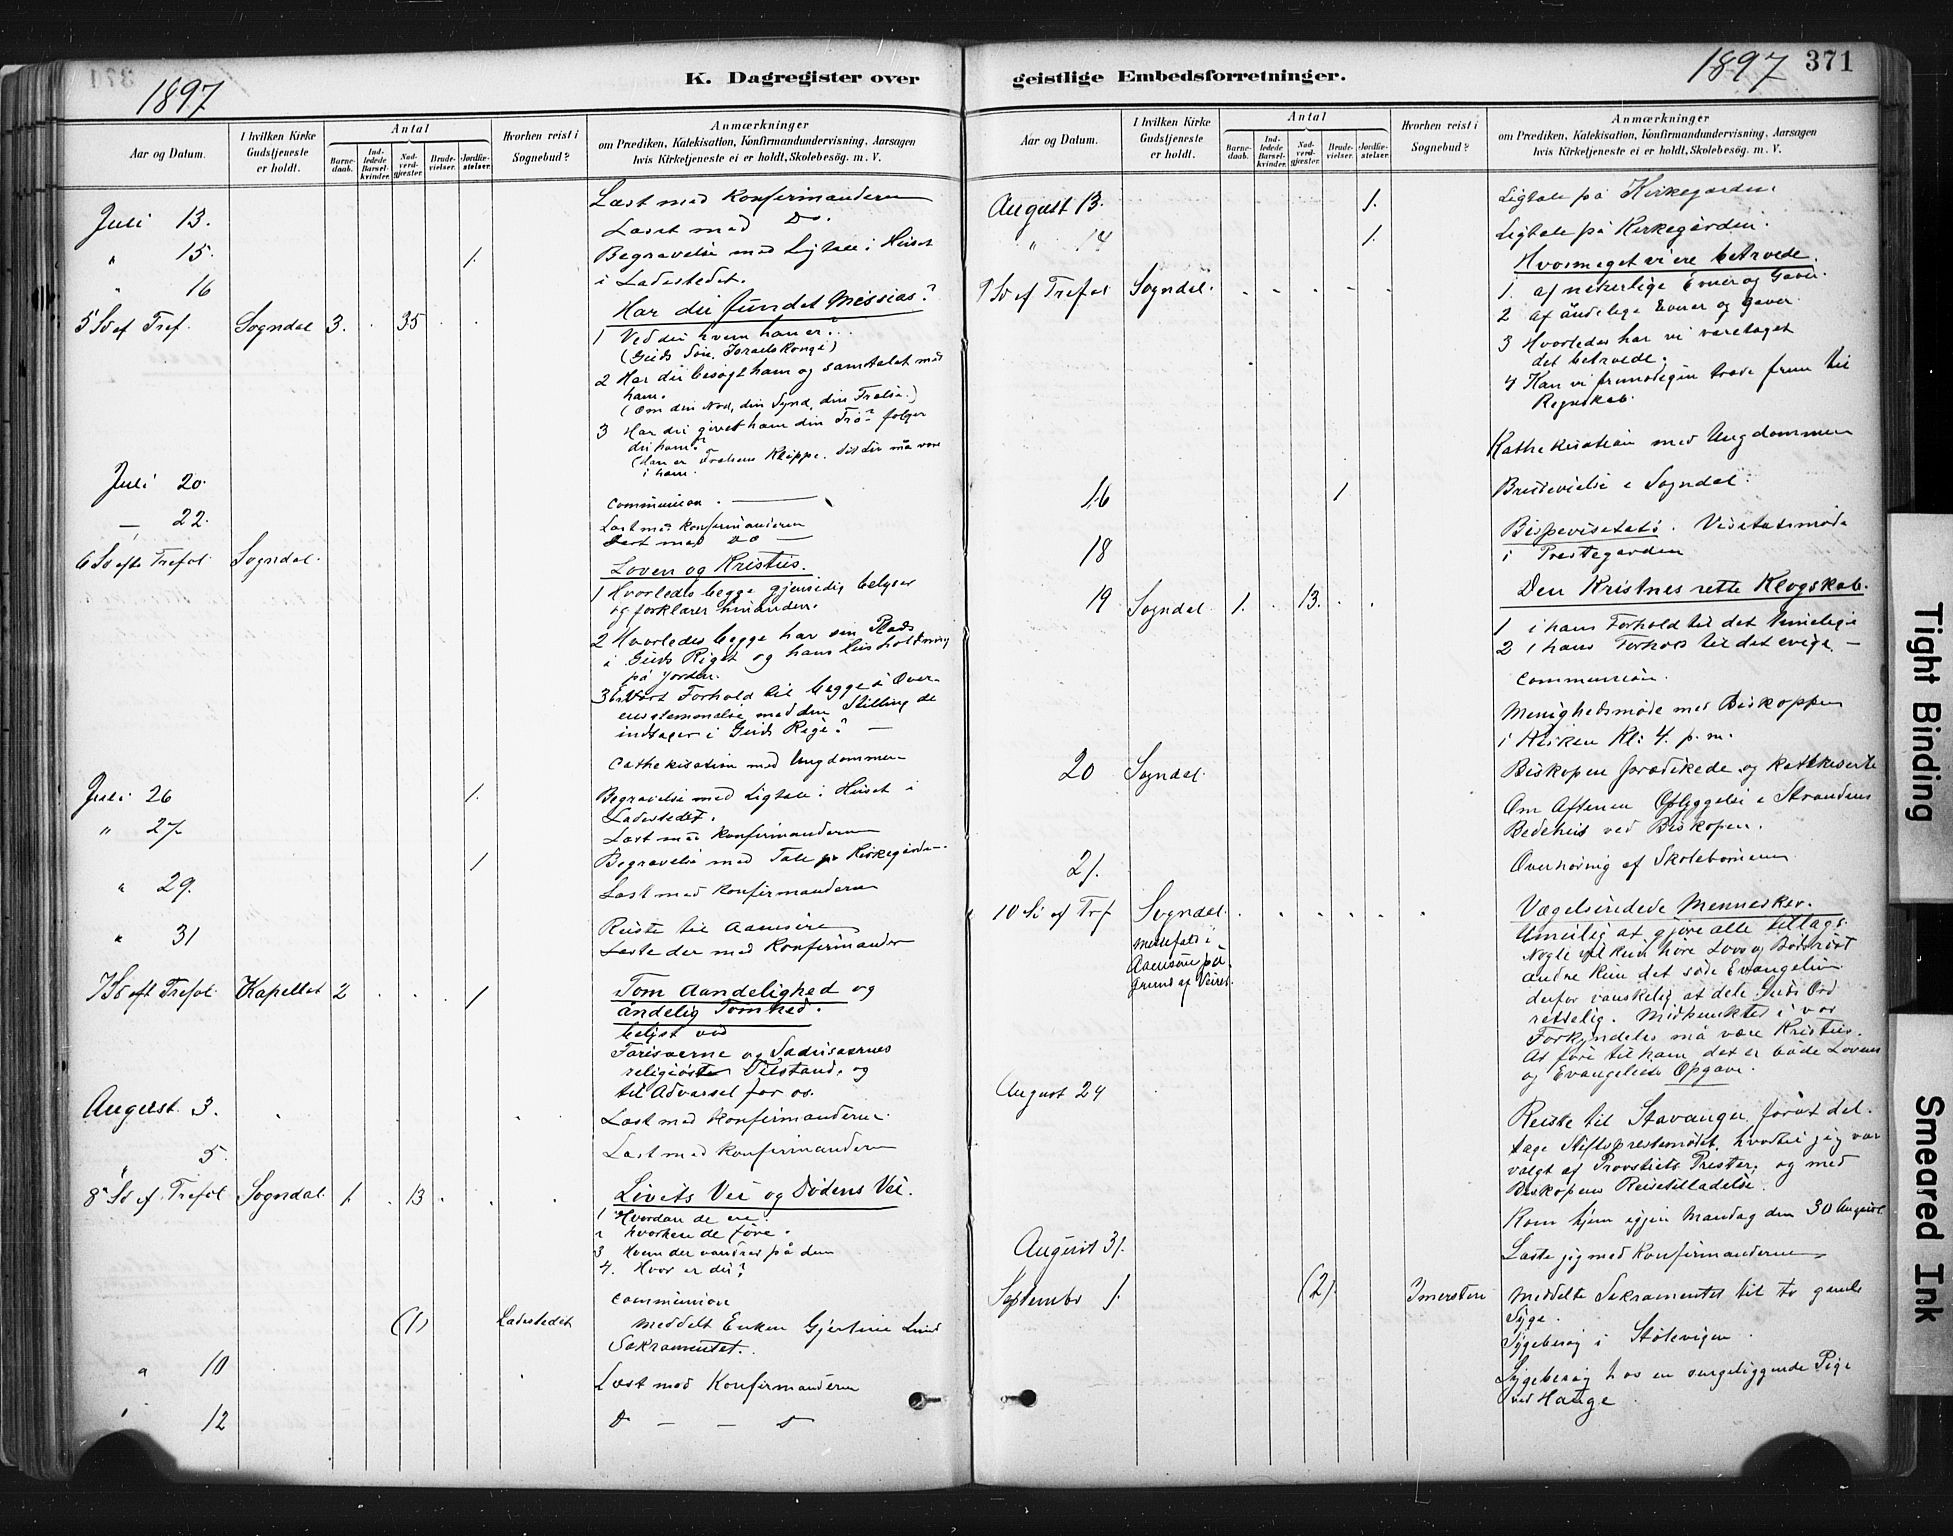 1897
K. Dagregister over
Aar og Datum.
I hvilken Kirke Gudstjeneste er holdt.
Antal
Barnedaab.
Indledede Barselkvinder.
Nadverdgjester.
Brudevielser.
Jordfæstelser.
Hvorhen reist i Sognebud?
Anmærkninger
om Prædiken, Katekisation, Konfirmandundervisning, Aarsagen
hvis Kirketjeneste ei er holdt, Skolebesøg. m. V.
Juli 13. Læst med Konfirmanderne
" 15. Læst med Do.
" 16 1. Begravelse med Ligtale i Huset
i Ladestedet.
5 Sd ef Tref. Sogndal 3. 35 Har du fundet Messias?
1 Ved du hvem han er?
(Guds Søn, Israels Konge)
2 Har du besøgt ham og samtalet med
ham.
(Om din Nød, din Synd, din Frelse.)
3 Har du givet ham din Tro? følger
du ham?
(Han er Frelsens Klippe. dit Liv må være
i ham.
Communion.
Juli 20. Læst med Konfirmanderne
— 22. Læst med Do —
6 Sd efte Trefol. Sogndal. Loven og Kristus.
1 Hvorledes begge gjensidig belyser
og forklarer hinanden.
2 Hvorledes begge har sin Plads
i Guds Riget og hans Husholdning
på Jorden.
3 Er vort Forhold til begge i Over-
ensstemmelse med den Stilling de
indtager i Guds Rige? —
Cathekisation med Ungdommen
Juli 26 1. Begravelse med Ligtale i Huset i
Ladestedet.
" 27. Læst med Konfirmanderne
1 Begravelse med Tale på Kirkegården.
" 29. Læst med Konfirmanderne
" 31 Reiste til Aamsire
Læste der med Konfirmander
7 Sd eft Trefol. Kapellet 2 1 Tom Aandelighed og
åndelig Tomhed.
belyst ved
Farisæerne og Sadusæernes
religiøse Tilstand, og
til Advarsel for os.
August 3. Læst med Konfirmanderne.
" 5. Læst med Konfirmanderne
8 Sd ef. Trefol Sogndal. 1. 13 Livets Vei og Dødens Vei.
1 Hvordan de ere.
2 hvorhen de føre.
3 Hvem der vandrer på dem
4. Hvor er du?
Communion
(1) Ladestedet Meddelt Enken Gjertine Lund
Sakramentet.
" 10 Læst med Konfirmanderne
" 12 D — — D
geistlige Embedsforretninger.
1897 371
Aar og Datum.
I hvilken Kirke Gudstjeneste er holdt.
Antal
Barnedaab.
Indledede Barselkvinder.
Nadverdgjester.
Brudevielser.
Jordfæstelser.
Hvorhen reist i Sognebud?
Anmærkninger
om Prædiken, Katekisation, Konfirmandundervisning, Aarsagen
hvis Kirketjeneste ei er holdt, Skolebesøg. m. V.
August 13. 1. Ligtale på Kirkegården.
" 14 1. Ligtale på Kirkegården.
9 Sd ef Trefol Sogndal. Hvormeget vi ere betroede.
1. af naturlige Evner og Gaver.
2 af åndelige Evner og Gaver.
3 Hvorledes har vi varetaget
det betroede.
4 Kan vi frimodigen træde frem til
Regnskab.
Kathekisation med Ungdommen
16 1 Brudevielse i Sogndal.
18 Bispevisitats. Visitatsmøde
i Prestegården
19 Sogndal. 1. 13. Den Kristnes rette Klogskab.
1 i hans Forhold til det timelige
2 i hans Forhold til det evige —
Communion.
Menighedsmøde med Biskoppen
i Kirken Kl: 4. p. m.
20 Sogndal. Biskopen prædikede og kathkiserte
Om Aftenen Opbyggelse i Strandens
Bedehus ved Biskopen.
21. Overhøring af Skolebørnene
10 Sd ef Trf Sogndal. Vægelsindede Mennesker.
Messefald i
Aamsire på
Grund af Veiret.
Umulig at gjøre alle tillags.
Nogle vil kun høre Lovog Bodsrøst
andre kun det søde Evangelium
derfor vanskelig at dele Guds Ord
rettelig. Midpunktet i vor
Forkyndelse må være Kristus.
At føre til ham, det er både Lovens
og Evangeliets Opgave.
August 24 Reiste til Stavanger forat del-
tage Stiftsprestemødet, hvortil jeg var
valgt af Provstiets Prester, og med
Biskopens Reisetilladelse.
Kom hjem igjen Mandag den 30 August
August 31. Læste jeg med Konfirmanderne
Septembr 1. (2) Imersten Meddelte Sakramentet til to gamle
Syge.
Sygebesøg i Stølevigen.
Sygebesøg hos en sengeliggende Pige
ved Hauge
Tight Binding
Smeared Ink